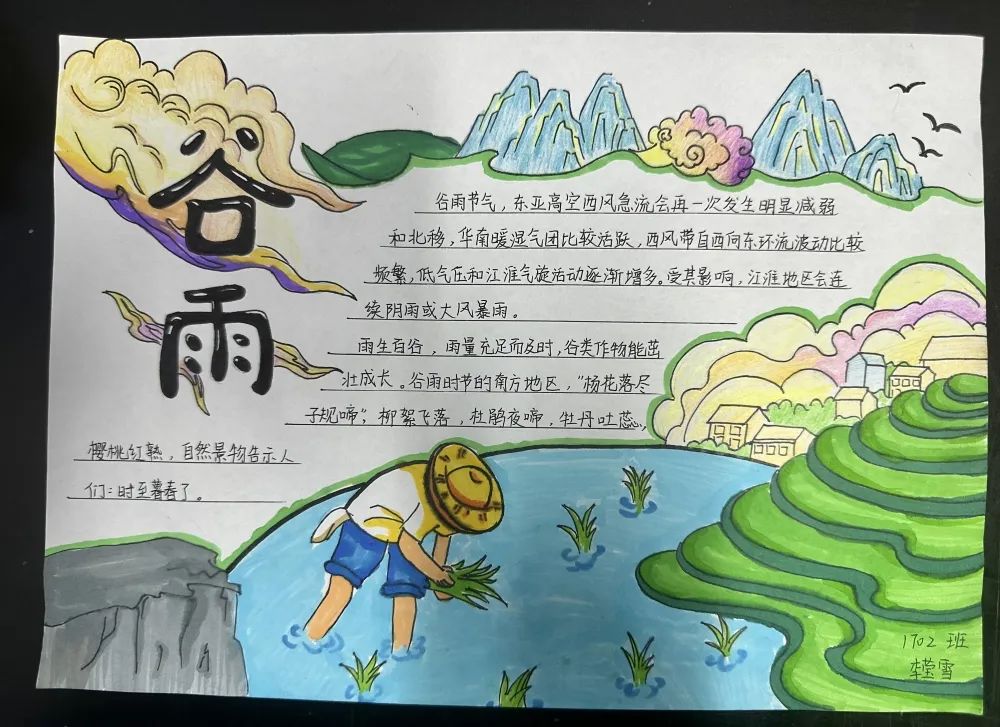 谷雨
谷雨节气，东亚高空西风急流会再一次发生明显减弱
和北移，华南暖湿气团比较活跃，西风带自西向东环流波动比较
频繁，低气压和江淮气旋活动逐渐增多。受其影响，江淮地区会连
续阴雨或大风暴雨。
雨生百谷，雨量充足而及时，谷类作物能茁
壮成长。谷雨时节的南方地区，“杨花落尽
子规啼”，柳絮飞落，杜鹃夜啼，牡丹吐蕊，
樱桃红熟，自然景物告示人
们：时至暮春了。
1702 班
李莹雪